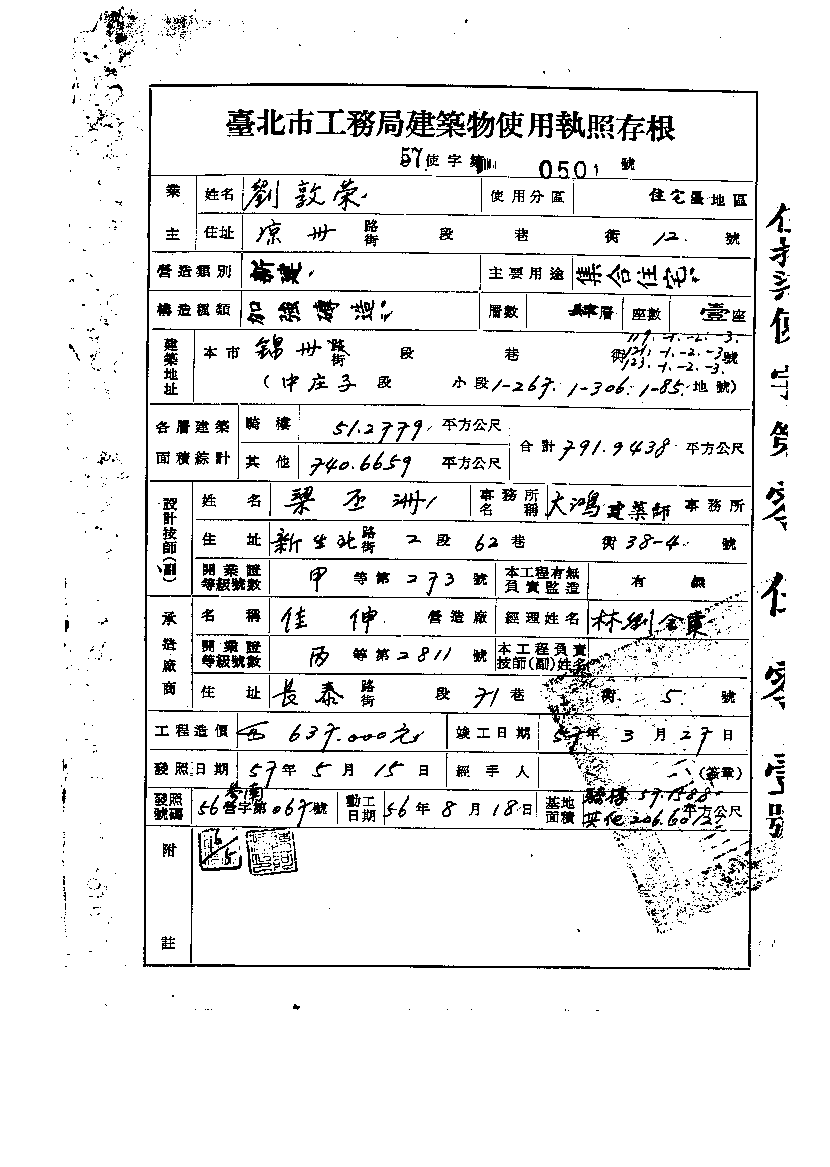 臺北市工務局建築物使用執照存根
57.使字第 0501 號
業主 姓名 劉敦榮 使用分區 住宅區地區
住址 涼州 路街 段 巷 衖 12 號
營造類別 新建 主要用途 集合住宅
構造種類 加強磚造 層數 層 座數 壹座
建築地址 本市 錦州 路街 段 巷 衖 119.-1.-2.-3. 121.-1.-2.-3 123.-1.-2.-3. 號
(中庄子段 小段1-267. 1-306. 1-85.地號)
各層建築面積綜計 騎樓 51.2779 平方公尺 合計791.9438平方公尺
其他 740.6659 平方公尺
設計技師(副) 姓名 梁丕洲 事務所名稱 大鴻建築師 事務所
住址 新生北 路街 2 段 62 巷 衖 38-4 號
開業證等級號數 甲 等第 273 號 本工程有無負責監造 有
承造廠商 名稱 佳伸 營造廠 經理姓名 林劉金
開業證等級號數 丙 等第 2811 號 本工程負責技師(副)姓名
住址 長泰 路街 段 71 巷 衖 5 號
工程造價 637.000元 竣工日期 57年 3 月 27 日
發照日期 57 年 5 月 15 日 經手人 (簽章)
發照號碼 56營字第067號 動工日期 56 年 8 月 18日 基地面積 騎樓 其他 平方公尺
附註